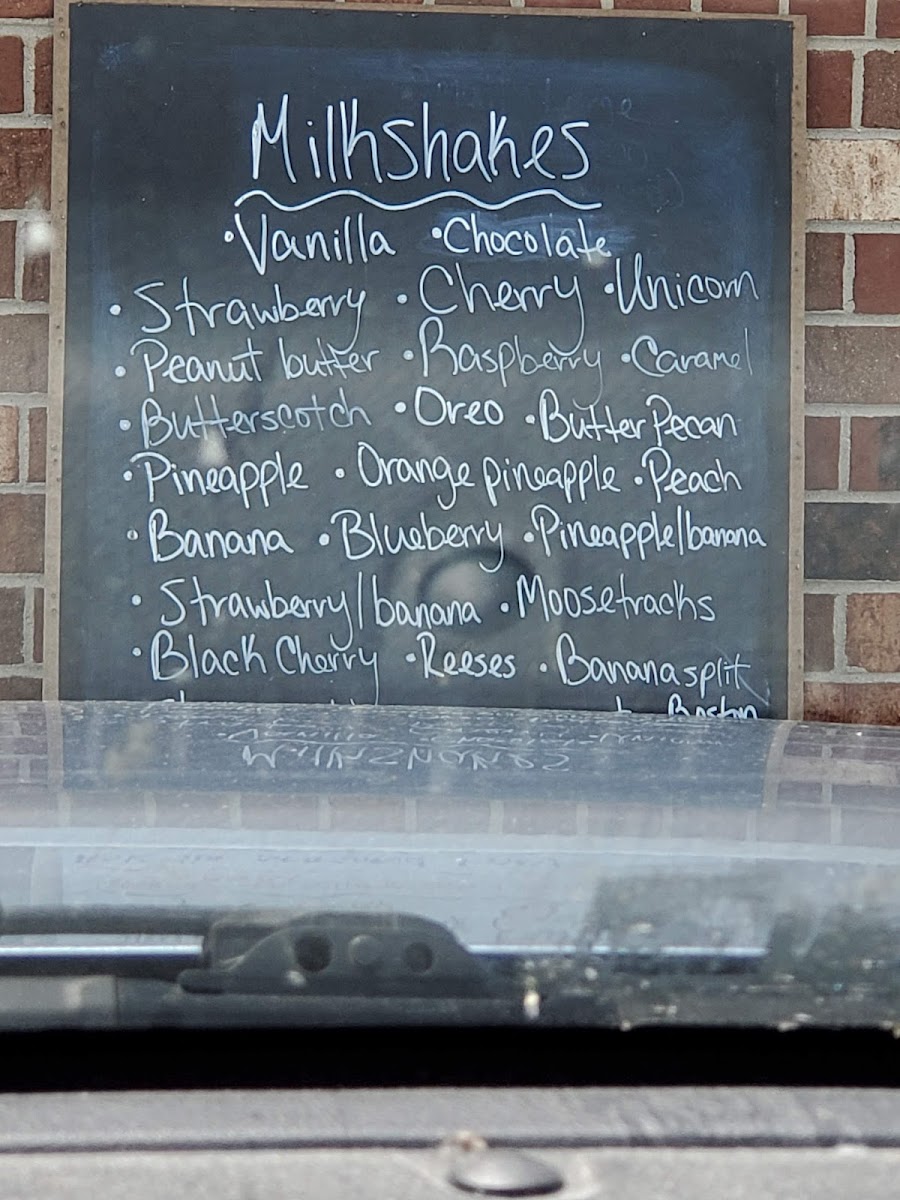 Milkshakes
•Vanilla •Chocolate
•Strawberry •Cherry •Unicorn
•Peanut butter •Raspberry •Caramel
•Butterscotch •Oreo •Butter Pecan
•Pineapple •Orange pineapple •Peach
•Banana •Blueberry •Pineapple/banana
•Strawberry/banana •Moosetracks
•Black Cherry •Reeses •Banana split
Boston